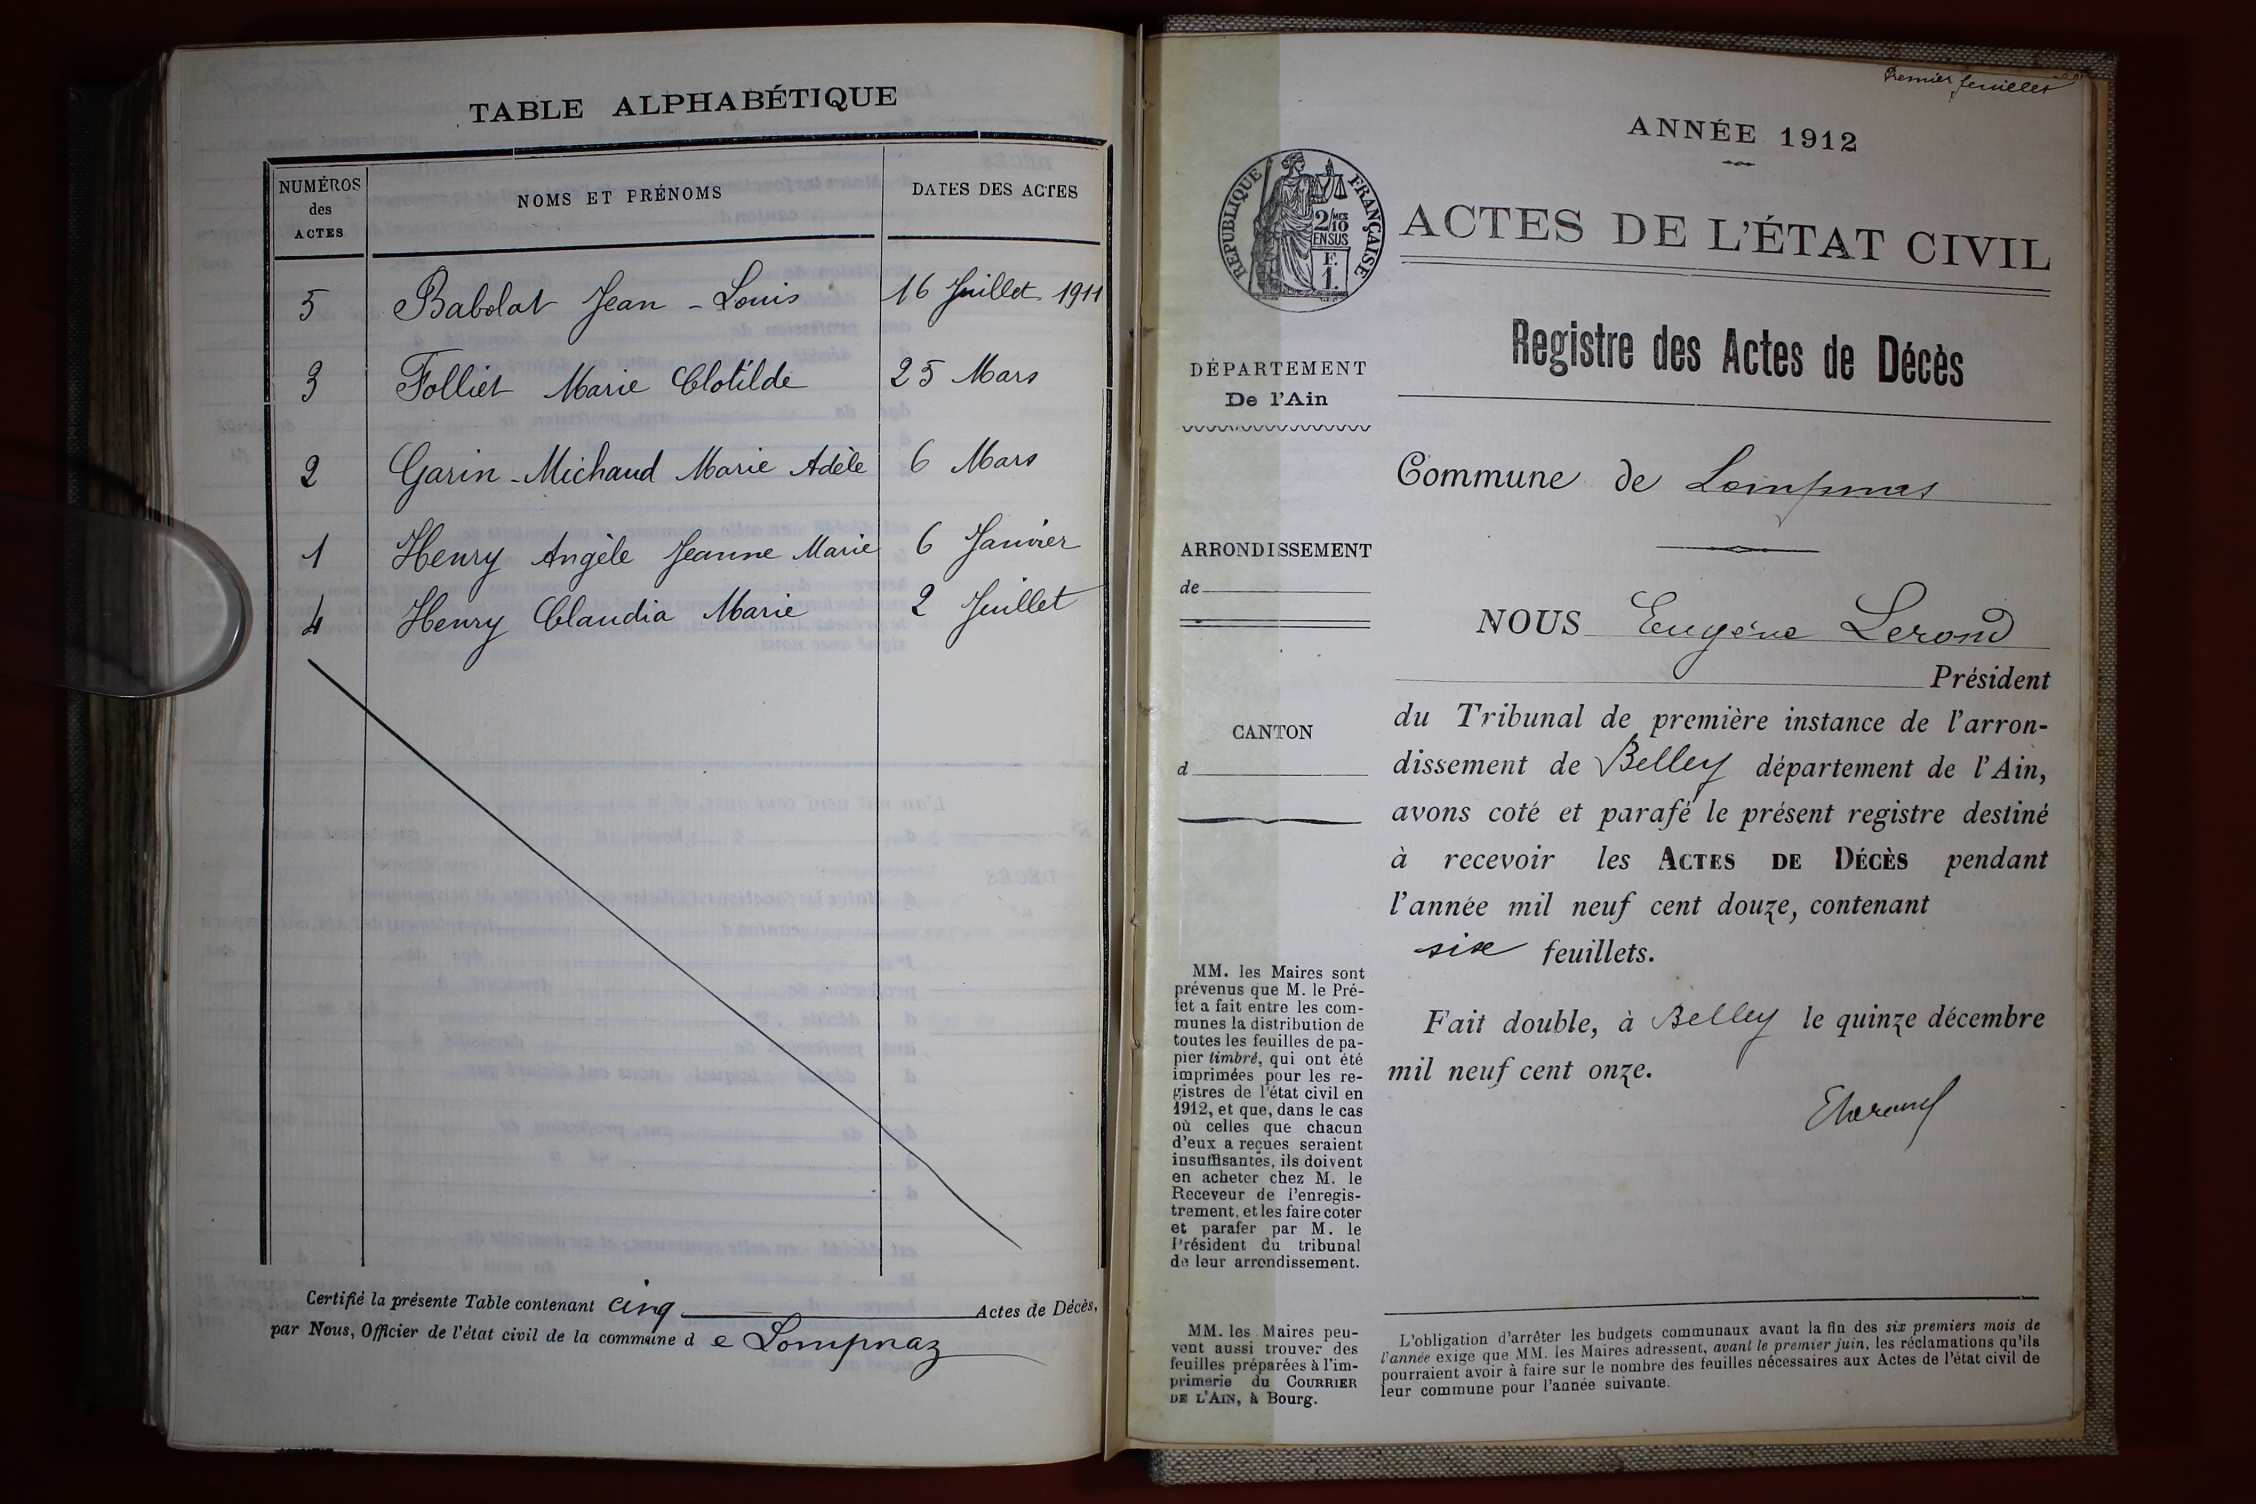 TABLE ALPHABÉTIQUE
NUMÉROS
des
ACTES
NOMS ET PRÉNOMS
DATES DES ACTES
5 Babolat Jean-Louis 16 Juillet 1911
3 Folliet Marie Clotilde 25 Mars
2 Garin-Michaud Marie Adèle 6 Mars
1 Henry Angèle Jeanne Marie 6 Janvier
4 Henry Claudia Marie 2 Juillet
Certifié la présente Table contenant cinq Actes de Décès,
par Nous, Officier de l'état civil de la commune d e Lompnaz
Premier feuillet
ANNÉE 1912
RÉPUBLIQUE FRANÇAISE
2/10MES
EN SUS
F.
1.
ACTES DE L'ÉTAT CIVIL
Registre des Actes de Décès
DÉPARTEMENT
De l'Ain
Commune de Lompnas
ARRONDISSEMENT
de
CANTON
d
NOUS Eugène Lerond
Président
du Tribunal de première instance de l'arron-
dissement de Belley département de l'Ain,
avons coté et parafé le présent registre destiné
à recevoir les ACTES DE DÉCÈS pendant
l'année mil neuf cent douze, contenant
six feuillets.
Fait double, à Belley le quinze décembre
mil neuf cent onze.
MM. les Maires sont
prévenus que M. le Pré-
fet a fait entre les com-
munes la distribution de
toutes les feuilles de pa-
pier timbré, qui ont été
imprimées pour les re-
gistres de l'état civil en
1912, et que, dans le cas
où celles que chacun
d'eux a reçues seraient
insuffisantes, ils doivent
en acheter chez M. le
Receveur de l'enregis-
trement, et les faire coter
et parafer par M. le
Président du tribunal
de leur arrondissement.
MM. les Maires peu-
vent aussi trouver des
feuilles préparées à l'im-
primerie du COURRIER
DE L'AIN, à Bourg.
L'obligation d'arrêter les budgets communaux avant la fin des six premiers mois de
l'année exige que MM. les Maires adressent, avant le premier juin, les réclamations qu'ils
pourraient avoir à faire sur le nombre des feuilles nécessaires aux Actes de l'état civil de
leur commune pour l'année suivante.